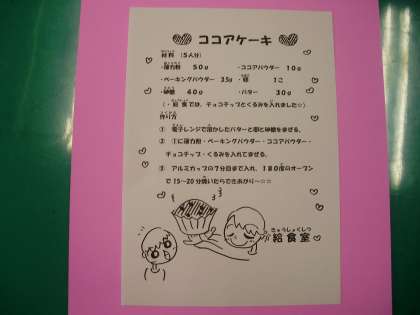 ココアケーキ
材料 (5人分)
・薄力粉 50g ・ココアパウダー 10g
・ベーキングパウダー 3.5g ・卵 1こ
・砂糖 40g ・バター 30g
(・給食では、チョコチップとくるみを入れました☆)
作り方
① 電子レンジで溶かしたバターと卵と砂糖をまぜる。
② ①に薄力粉・ベーキングパウダー・ココアパウダー・
チョコチップ・くるみを入れてまぜる。
③ アルミカップの7分目まで入れ、180度のオーブン
で15~20分焼いたらできあがり~☆☆
きゅうしょくしつ
給食室